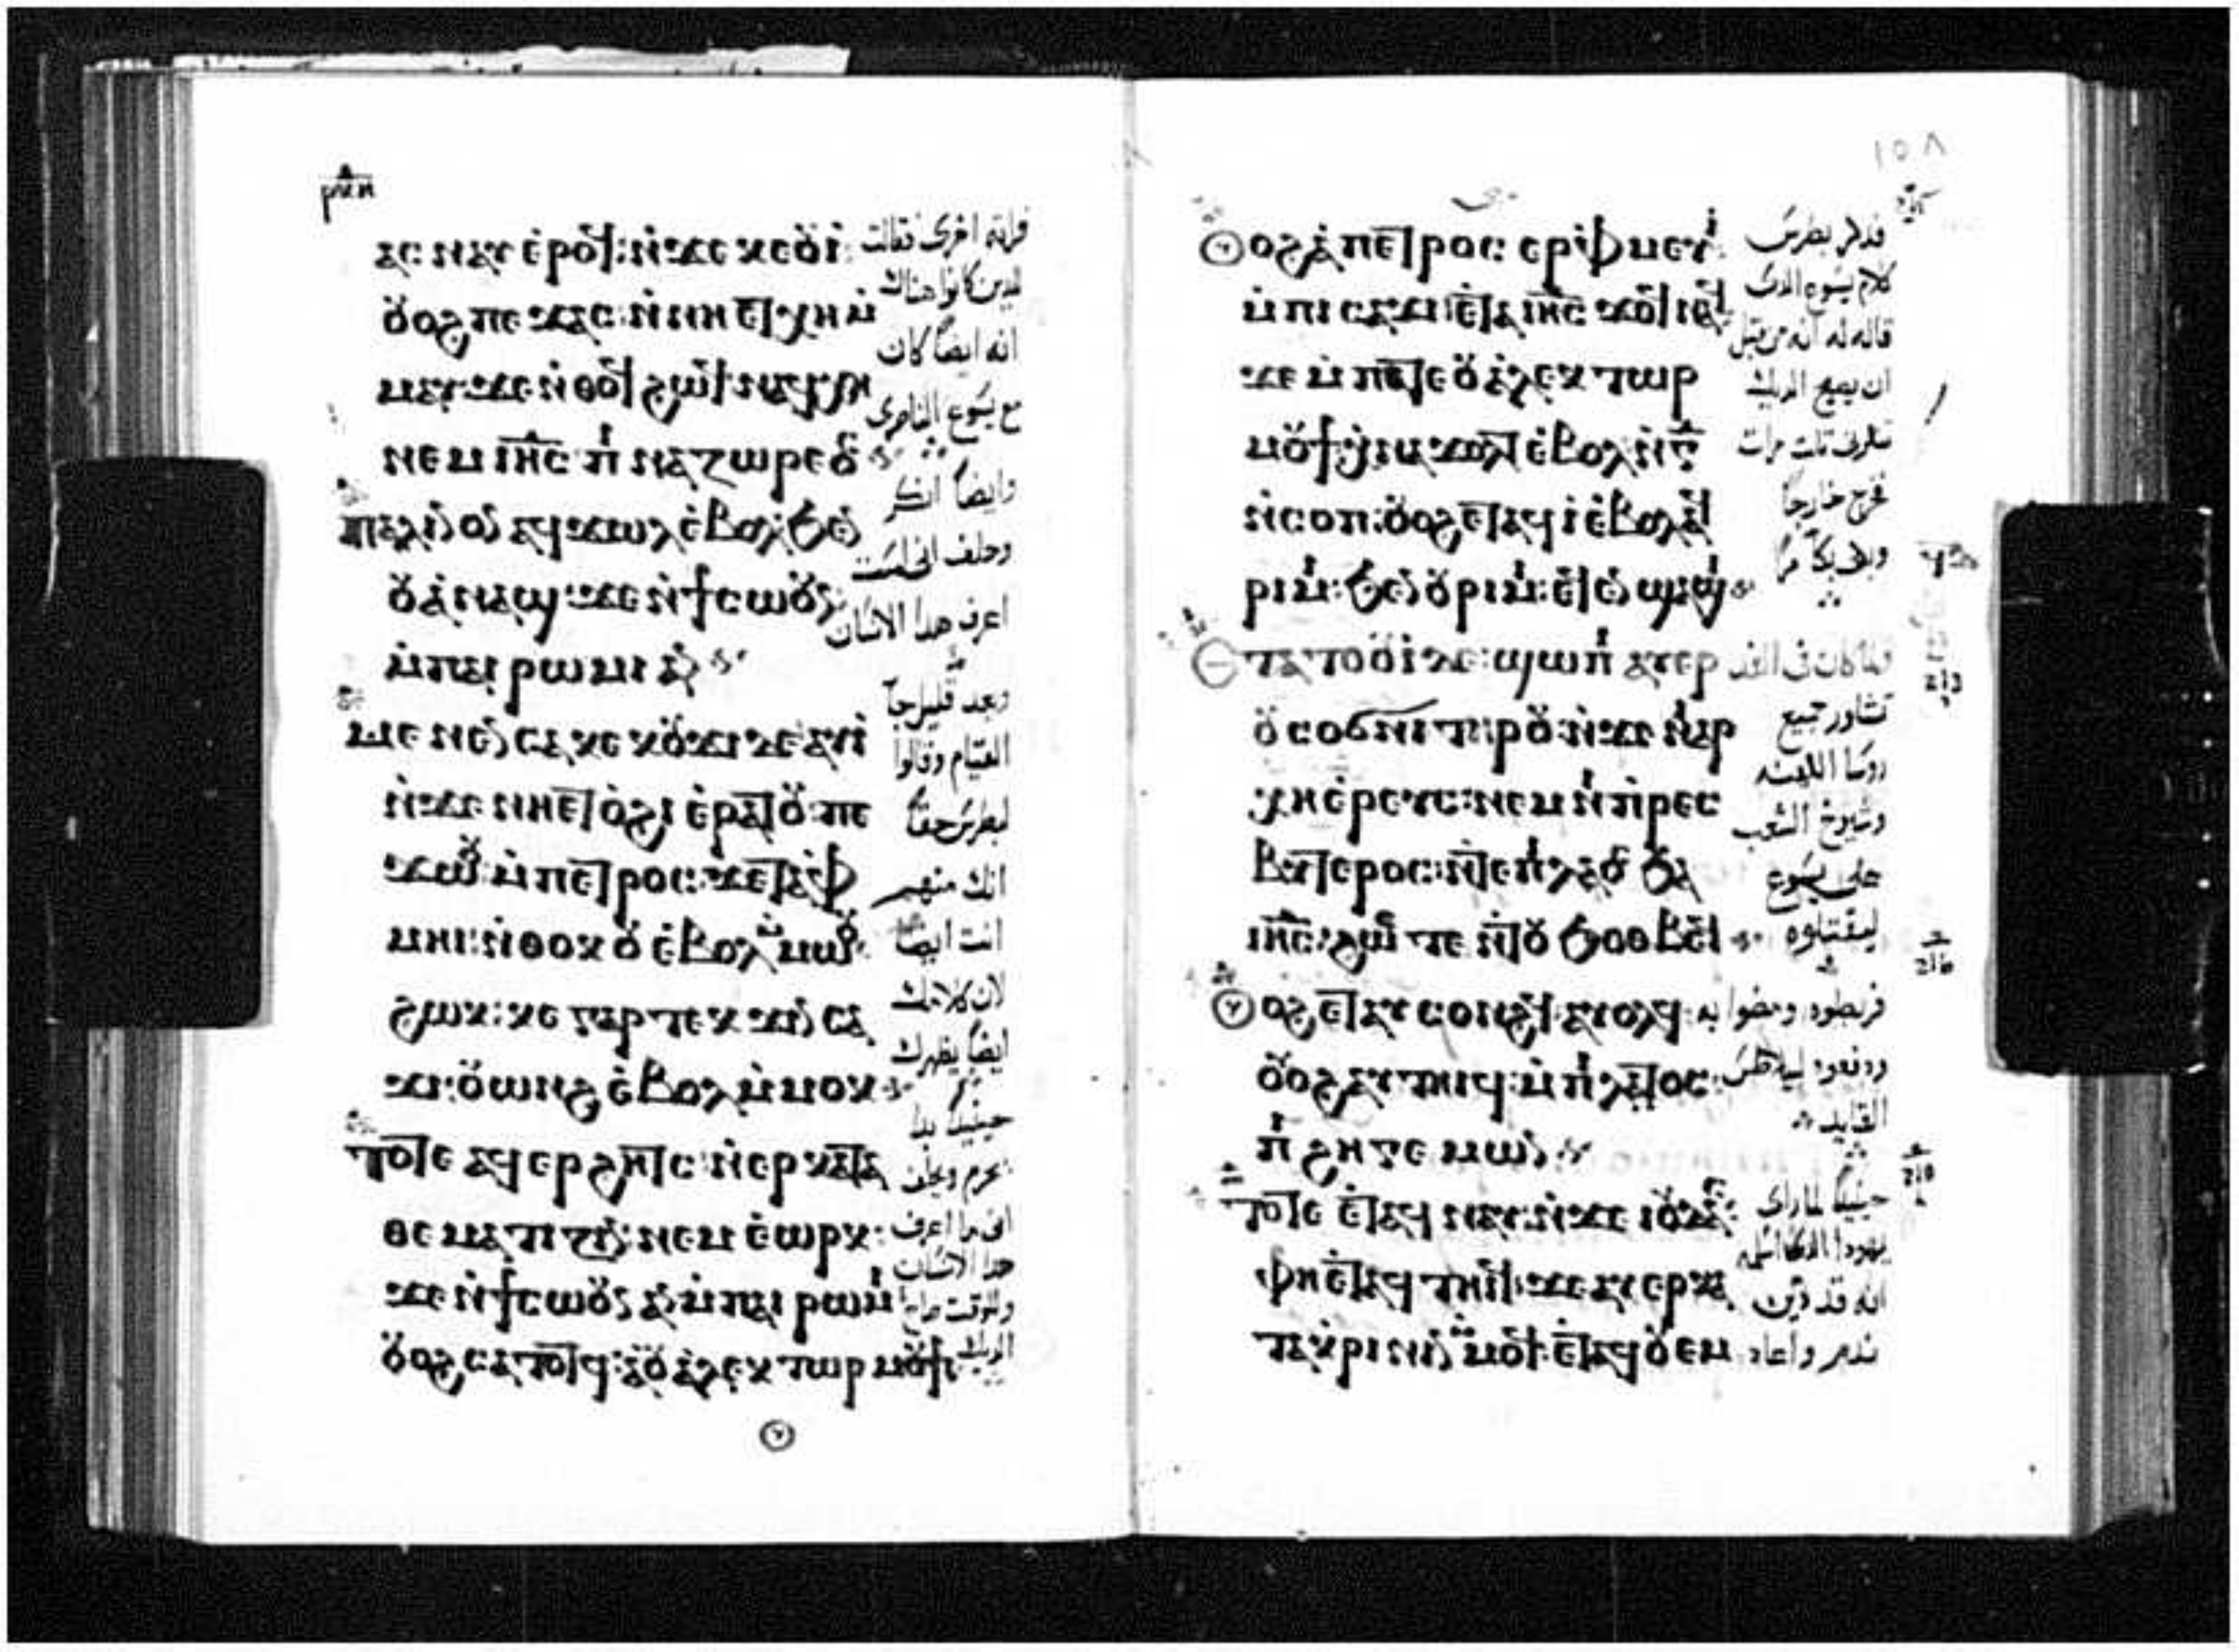 ⲣⲛⲏ
ⲁⲥⲛⲁⲩ ⲉⲣⲟϥ: ⲛϫⲉ ⲕⲉⲟⲩⲓ:
ⲟⲩⲟϩ ⲡⲉϫⲁⲥ: ⲛⲛⲏⲉⲧⲭⲏ ⲙ
ⲙⲁⲩ: ϫⲉ ⲛⲑⲟϥ ϩⲱϥ ⲛⲁϥⲭⲏ
ⲛⲉⲙ ⲓⲏⲥ ⲡⲓ ⲛⲁⲍⲱⲣⲉⲟⲥ
ⲡⲁⲗⲓⲛ ⲟⲛ ⲁϥϫⲱⲗ ⲉⲃⲟⲗ ϧⲉⲛ
ⲟⲩⲁⲛⲁϣ: ϫⲉ ⲛϯⲥⲱⲟⲩⲛ
ⲙⲡⲁⲓⲣⲱⲙⲓ ⲁⲛ
ⲙⲉⲛⲉⲛⲥⲁ ⲕⲉⲕⲟⲩϫⲓ ⲇⲉ ⲁⲩⲓ
ⲛϫⲉ ⲛⲏⲉⲧⲟϩⲓ ⲉⲣⲁⲧⲟⲩ: ⲡⲉ
ϫⲱⲟⲩ ⲙⲡⲉⲧⲣⲟⲥ: ϫⲉ ⲧⲁⲫ
ⲙⲏⲓ: ⲛⲑⲟⲕ ⲟⲩⲉⲃⲟⲗ ⲙⲙⲱⲟⲩ
ϩⲱⲕ: ⲕⲉ ⲅⲁⲣ ⲧⲉⲕϫⲓⲛⲥⲁ
ϫⲓ: ⲟⲩⲱⲛϩ ⲉⲃⲟⲗ ⲙⲙⲟⲕ
ⲧⲟⲧⲉ ⲁϥⲉⲣϩⲏⲧⲥ: ⲛⲉⲣⲕⲁⲧⲁ
ⲑⲉⲙⲁⲧⲓⲍⲓⲛ: ⲛⲉⲙ ⲉⲱⲣⲕ:
ϫⲉ ⲛϯⲥⲱⲟⲩⲛ ⲁⲛ ⲙⲡⲁⲓⲣⲱⲙⲓ
ⲟⲩⲟϩ ⲥⲁⲧⲟⲧϥ: ⲁⲟⲩⲁⲗⲉⲕⲧⲱⲣ ⲙⲟⲩϯ
فراته اخرى فقالت
للدين كانوا هناك
انه ايضا كان
مع يسوع الناصرى
وايضا انكر
وحلف انى لست
اعرف هدا الانسان
وبعد قليل جا
القيام وقالوا
لبطرس حقا
انك منهم
انت ايضا
لان كلامك
ايضا يظهرك
حينيذ بدا
يحرم ويحلف
انى ما اعرف
هدا الانسان
وللوقت صاح
الديك
١٥٨
ⲟⲩⲟϩ ⲁⲡⲉⲧⲣⲟⲥ ⲉⲣⲫⲙⲉⲩⲓ:
ⲙⲡⲓⲥⲁϫⲓ ⲉⲧⲁ ⲓⲏⲥ ϫⲟϥ ⲛⲁϥ
ϫⲉ ⲙⲡⲁⲧⲉ ⲟⲩⲁⲗⲉⲕⲧⲱⲣ
ⲙⲟⲩϯ ⲭⲛⲁϫⲟⲗⲧ ⲉⲃⲟⲗ ⲛⲅ
ⲛⲥⲟⲡ: ⲟⲩⲟϩ ⲉⲧⲁϥⲓ ⲉⲃⲟⲗ ⲁϥ
ⲣⲓⲙⲓ: ϧⲉⲛ ⲟⲩⲣⲓⲙⲓ: ⲉϥⲉⲛϣⲁϣⲓ
ⲧⲁⲧⲟⲟⲩⲓ ⲇⲉ: ϣⲱⲡⲓ ⲁⲩⲉⲣ
ⲟⲩⲥⲟϭⲛⲓ ⲧⲏⲣⲟⲩ: ⲛϫⲉ ⲛⲓⲁⲣ
ⲭⲏⲉⲣⲉⲩⲥ: ⲛⲉⲙ ⲛⲓⲡⲣⲉⲥ
ⲃⲩⲧⲉⲣⲟⲥ: ⲛⲧⲉ ⲡⲓⲗⲁⲟⲥ ϧⲁ
ⲓⲏⲥ: ϩⲱⲥⲧⲉ ⲛⲧⲟⲩϧⲟⲑⲃⲉϥ
ⲟⲩⲟϩ ⲉⲧⲁⲩⲥⲟⲛϩϥ: ⲁⲩⲟⲗϥ:
ⲟⲩⲟϩ ⲁⲩⲧⲏⲓϥ: ⲙⲡⲓⲗⲁⲧⲟⲥ:
ⲡⲓϩⲏⲅⲉⲙⲱⲛ
ⲧⲟⲧⲉ ⲉⲧⲁϥⲛⲁⲩ: ⲛϫⲉ ⲓⲟⲩⲇⲁⲥ:
ⲫⲏⲉⲧⲁϥⲧⲏⲓϥ: ϫⲉ ⲁⲩⲉⲣⲕⲁ
ⲧⲁⲕⲣⲓⲛⲓⲛ ⲙⲙⲟϥ: ⲉⲧⲁϥⲟⲩⲉⲙ
فدكر بطرس
كلام يسوع الدى
قاله له انه من قبل
ان يصيح الديك
تنكرنى تلت مرات
فخرج خارجا
وبكى بكا مرا
فلما كان فى الغد
تشاور جميع
روسا الكهنه
وشيوخ الشعب
على يسوع
ليقتلوه
فربطوه ومضوا به
ودفعوه لبيلاطس
القايد
حينيذ لما راى
يهودا الدى اسلمه
انه قد دين
ندم واعاد